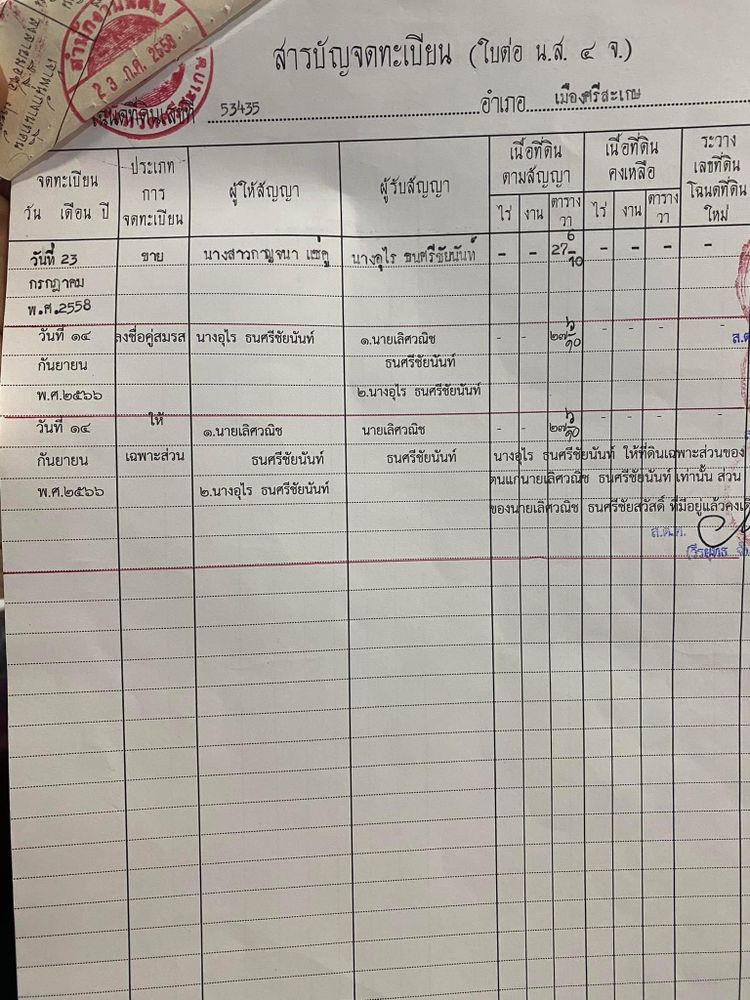 สำนักงานที่ดิน
23 ก.ค. 2558
สารบัญจดทะเบียน (ใบต่อ น.ส. ๔ จ.)
โฉนดที่ดินเลขที่ 53435 อำเภอ เมืองศรีสะเกษ
จดทะเบียน
วัน เดือน ปี
ประเภท
การ
จดทะเบียน
ผู้ให้สัญญา
ผู้รับสัญญา
เนื้อที่ดิน
ตามสัญญา
ไร่ งาน ตาราง
วา
เนื้อที่ดิน
คงเหลือ
ไร่ งาน ตาราง
วา
ระวาง
เลขที่ดิน
โฉนดที่ดิน
ใหม่
วันที่ 23 ขาย นางสาวกาญจนา แซ่คู นางอุไร ธนศรีชัยนันท์ - - 27 6/10 - - - -
กรกฎาคม
พ.ศ.2558
วันที่ ๑๔ ลงชื่อคู่สมรส นางอุไร ธนศรีชัยนันท์ ๑.นายเลิศวณิช - - ๒๗ ๖/๑๐ - - - -
กันยายน ธนศรีชัยนันท์
พ.ศ.๒๕๖๖ ๒.นางอุไร ธนศรีชัยนันท์
วันที่ ๑๔ ให้ ๑.นายเลิศวณิช นายเลิศวณิช - - ๒๗ ๖/๑๐ - - - -
กันยายน เฉพาะส่วน ธนศรีชัยนันท์ ธนศรีชัยนันท์ นางอุไร ธนศรีชัยนันท์ ให้ที่ดินเฉพาะส่วนของ
พ.ศ.๒๕๖๖ ๒.นางอุไร ธนศรีชัยนันท์ ตนแก่นายเลิศวณิช ธนศรีชัยนันท์ เท่านั้น ส่วน
ของนายเลิศวณิช ธนศรีชัยสวัสดิ์ ที่มีอยู่แล้วคงเดิ
ส.ต.ต.